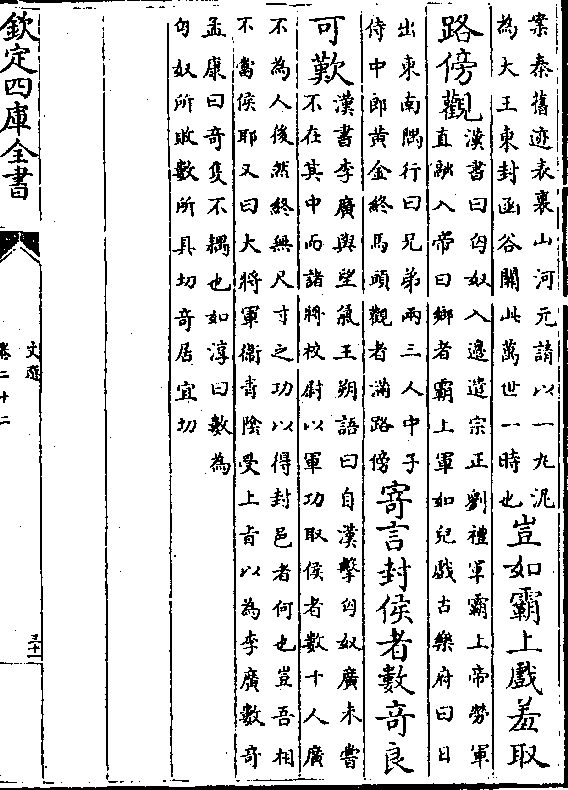 案秦舊迹表裏山河元請以一丸泥
為大王東封函谷關此萬世一時也
豈如霸上戲羞取
路傍觀
漢書曰匈奴入邊遣宗正劉禮軍霸上帝勞軍
直馳入帝曰鄉者霸上軍如兒戲古樂府曰日
出東南隅行曰兄弟兩三人中子
侍中郎黄金終馬頭觀者滿路傍
寄言封侯者數奇良
可歎
漢書李廣與望氣王朔語曰自漢擊匈奴廣未嘗
不在其中而諸將校尉以軍功取侯者數十人廣
不為人後然終無尺寸之功以得封邑者何也豈吾相
不當侯耶又曰大將軍衛青陰受上㫖以為李廣數奇
孟康曰奇隻不耦也如淳曰數為
匈奴所敗數所具切奇居宜切
欽定四庫全書
文選
卷二十二
三十一